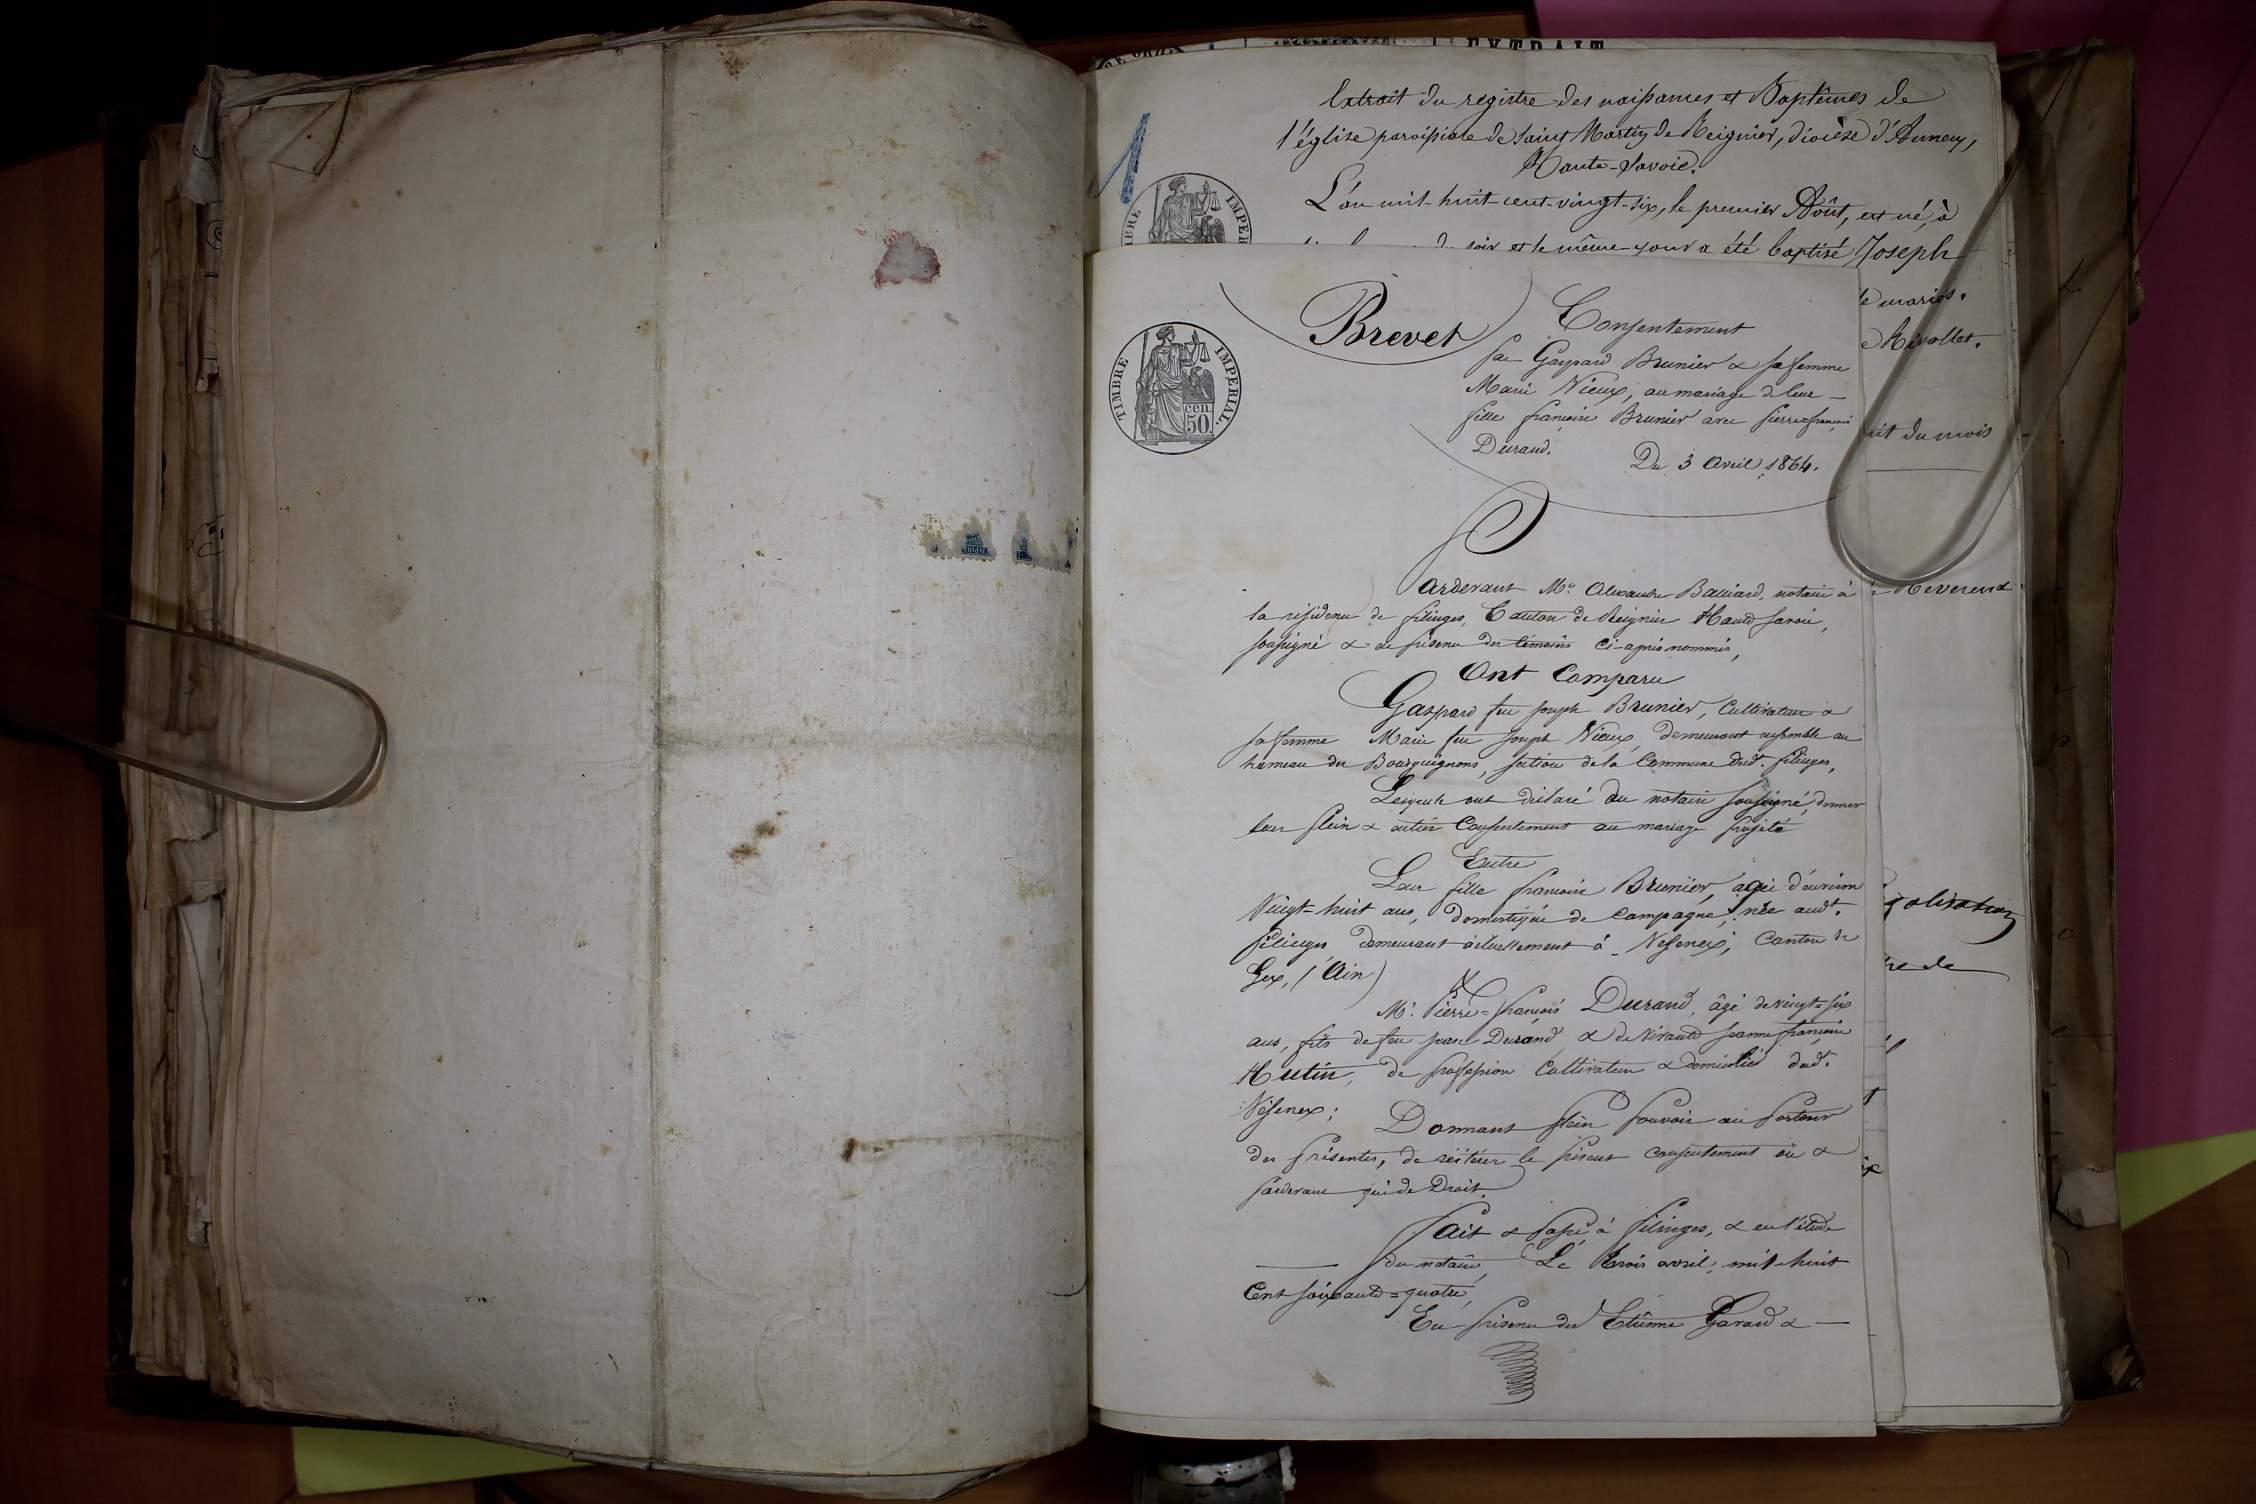 EXTRAIT
Extrait du registre des naissances et Baptêmes de
l'église paroissiale de Saint Martin de Reignier, diocèse d'Annecy,
Haute-Savoie.
L'an mil-huit-cent-vingt-six, le premier Août, est né, à
du soir et le même jour a été baptisé Joseph
TIMBRE IMPERIAL.
cen. 50.
Brevet
Consentement
par Gaspard Brunier & sa femme
Marie Nieux, au mariage de leur
fille françoise Brunier avec Pierre=françois
Durand.
Du 3 Avril 1864.
mariés.
Rivollet.
du mois
Pardevant Me. Alexandre Balliard, notaire à
Reverend
la résidence de fillinges, Canton de Reignier Haute Savoie,
soussigné & en présence des témoins ci-après nommés,
Ont Comparu
Gaspard feu Joseph Brunier, Cultivateur &
sa femme Marie feu Joseph Nieux, demeurant ensemble au
hameau des Bourguignons, section de la Commune dud. fillinges,
Lesquels ont déclaré au notaire soussigné, donner
leur plein & entier Consentement au mariage projeté
Entre
Leur fille françoise Brunier, agée d'environ
Vingt=huit ans, domestique de Campagne, née audt.
fillinges demeurant actuellement à Vesenex, Canton de
Gex, (Ain)
&
Mr. Pierre=françois Durand, âgé de vingt=six
ans, fils de feu Durand & de vivante Jeanne françoise
Hutin, de profession Cultivateur & domicilié dudt.
Vésenex;
Donnant plein pouvoir au porteur
des présentes, de réitérer le présent consentement où &
pardevant qui de Droit.
Fait & Passé à fillinges, & en l'étude
du notaire, Le trois avril, mil-huit
Cent soixante=quatre,
En présence des Etienne Gavard &
re de